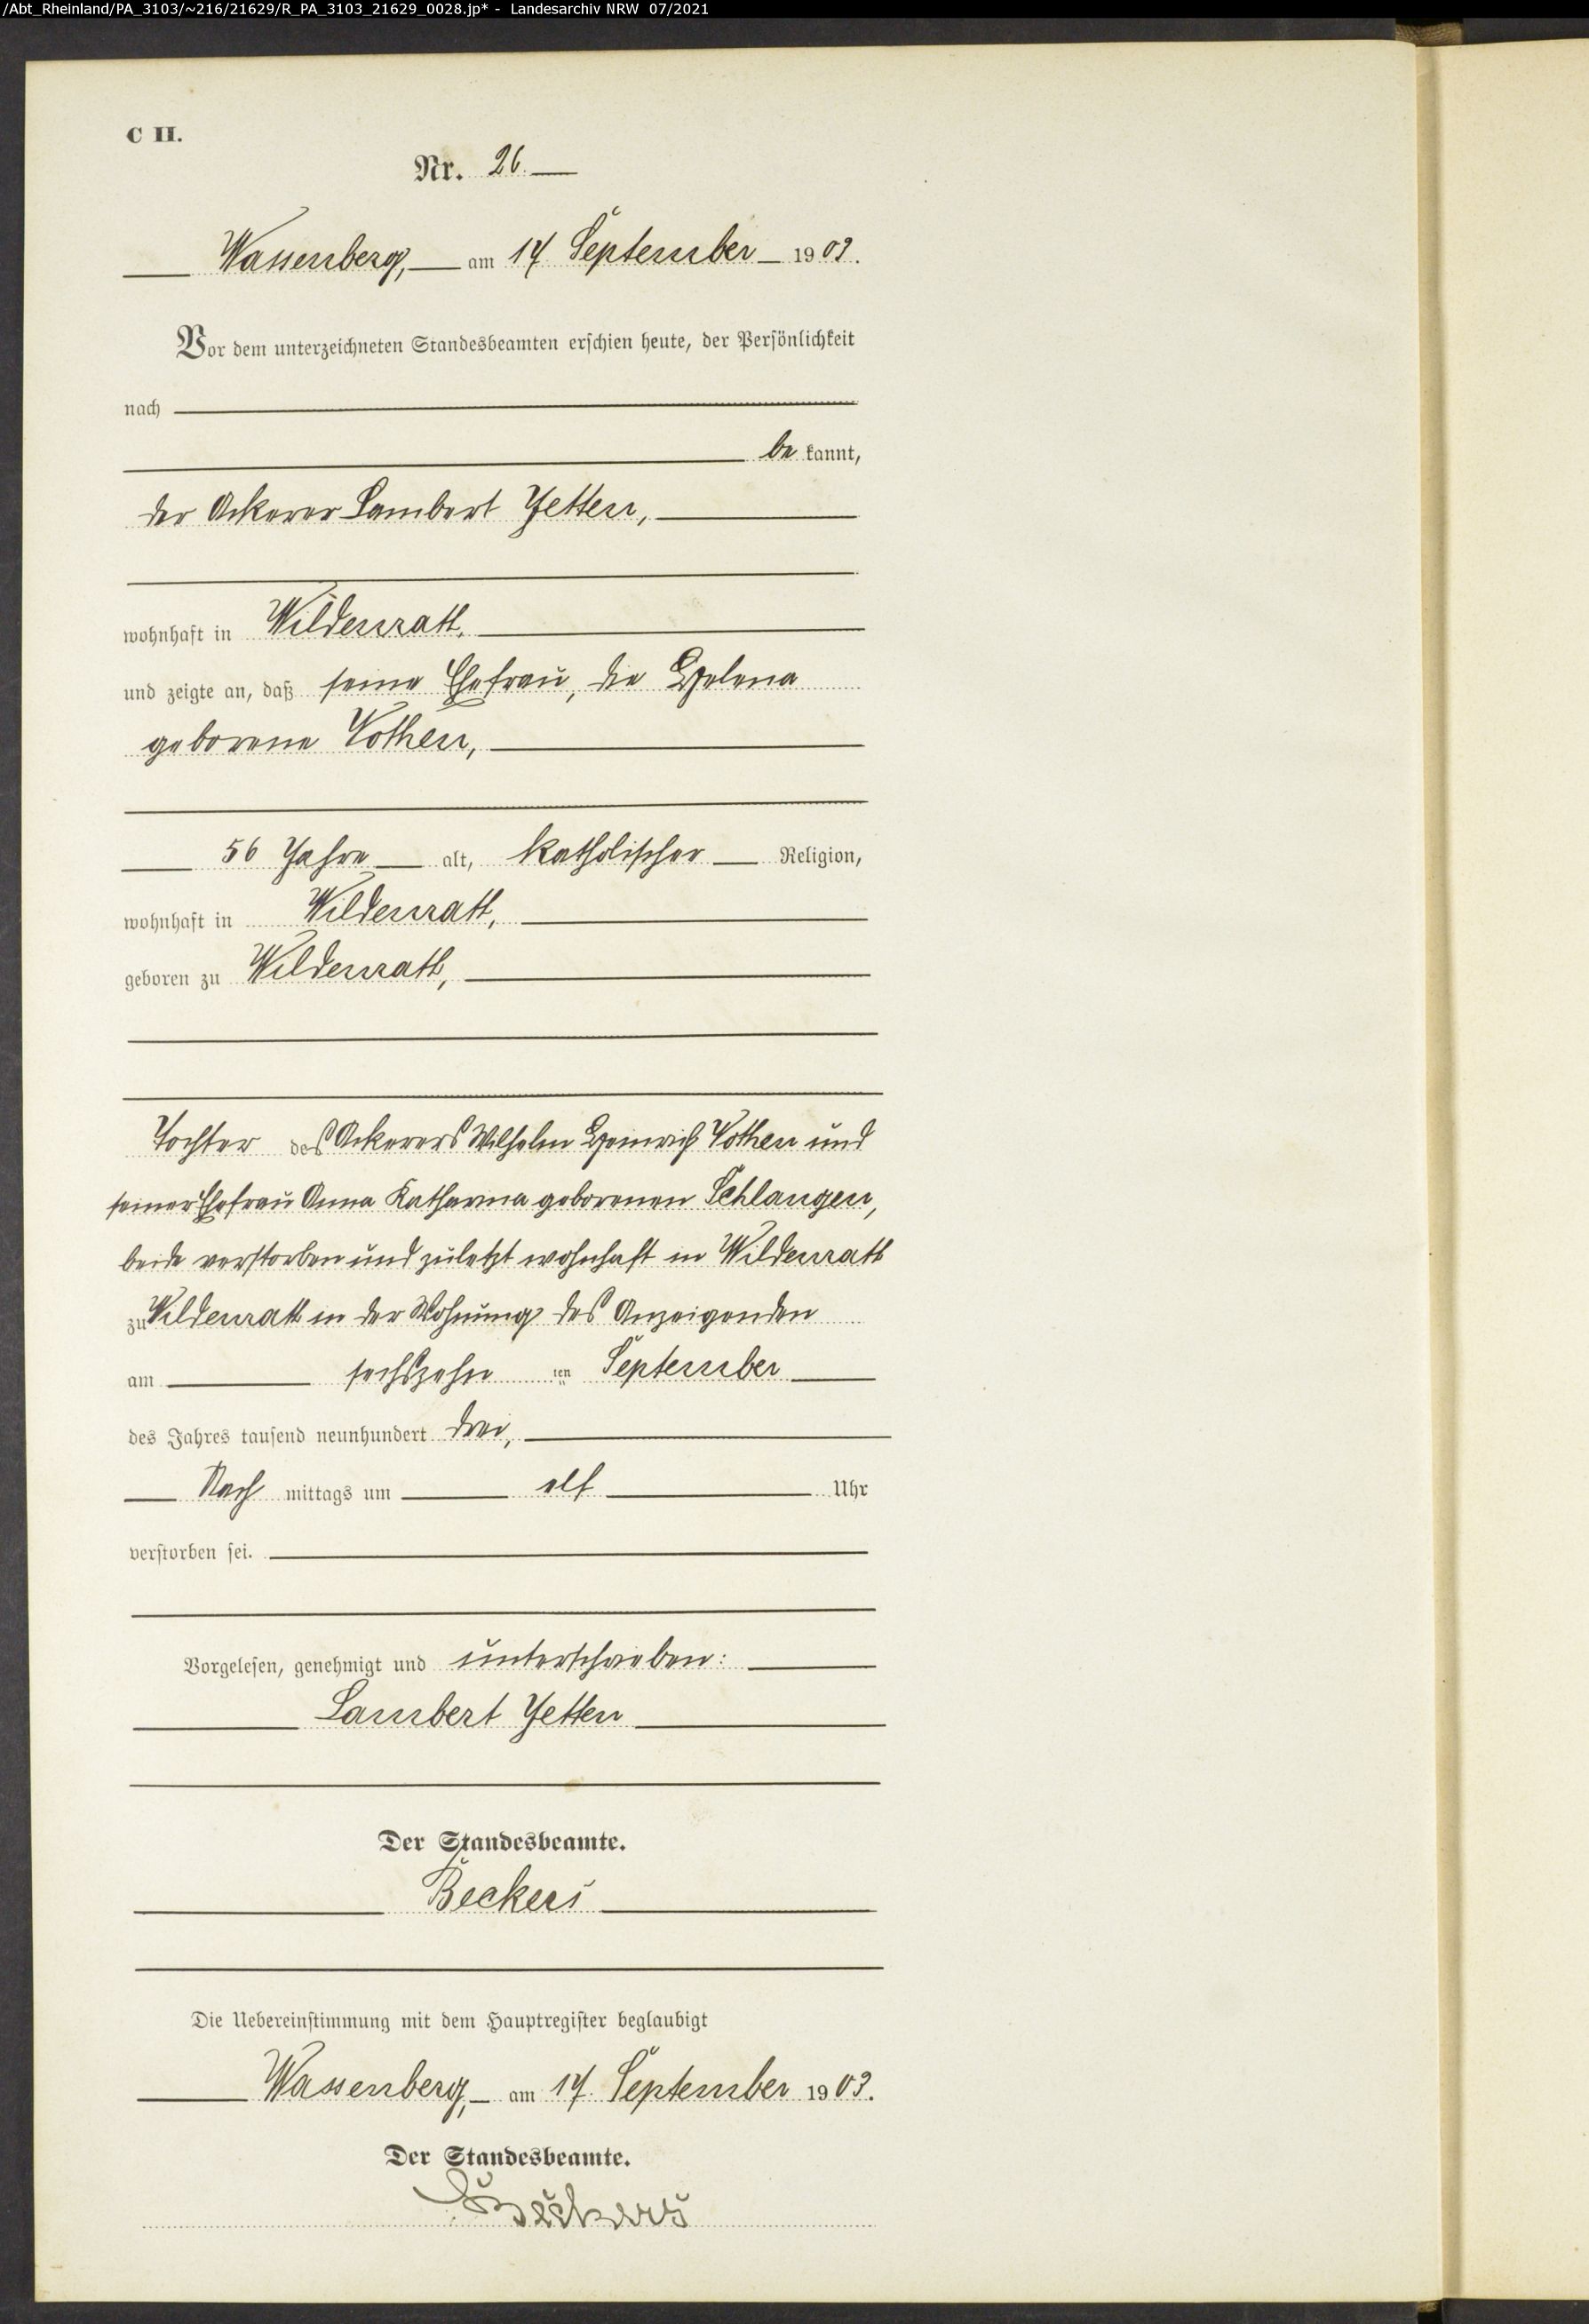 /Abt_Rheinland/PA_3103/~216/21629/R_PA_3103_21629_0028.jp* - Landesarchiv NRW 07/2021
C II.
Nr. 26.
Wassenberg, am 17 September 1903.
Vor dem unterzeichneten Standesbeamten erschien heute, der Persönlichkeit
nach
be kannt,
der Ackerer Lambert Jetten,
wohnhaft in Wildenrath,
und zeigte an, daß seine Ehefrau, die Helena
geborene Vothen,
56 Jahre alt, katholischer Religion,
wohnhaft in Wildenrath,
geboren zu Wildenrath,
Tochter des Ackerers Wilhelm Heinrich Vothen und
seiner Ehefrau Anna Katharina geborenen Schlangen,
beide verstorben und zuletzt wohnhaft in Wildenrath
zu Wildenrath in der Wohnung des Anzeigenden
am sechszehn ten September
des Jahres tausend neunhundert drei,
Nach mittags um elf Uhr
verstorben sei.
Vorgelesen, genehmigt und unterschrieben:
Lambert Jetten
Der Standesbeamte.
Beckers
Die Uebereinstimmung mit dem Hauptregister beglaubigt
Wassenberg, am 17. September 1903.
Der Standesbeamte.
Beckers